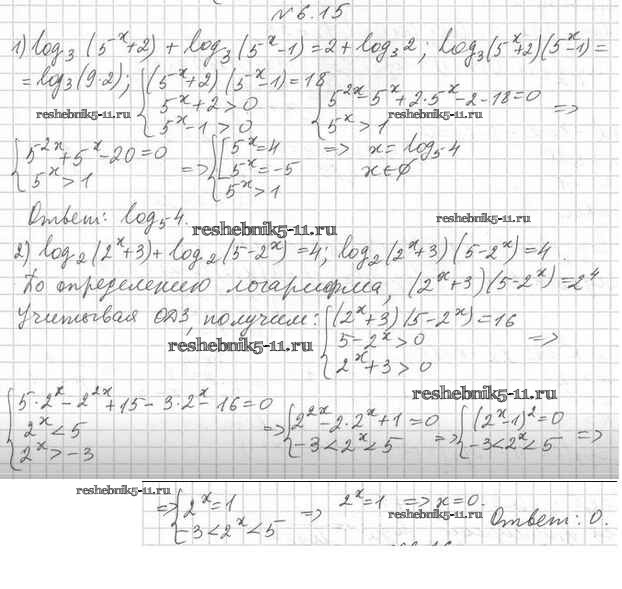 № 6.15
1) log₃(5⁻ˣ+2) + log₃(5⁻ˣ-1) = 2 + log₃2; log₃(5⁻ˣ+2)(5⁻ˣ-1) =
= log₃(9·2); { (5⁻ˣ+2)(5⁻ˣ-1) = 18 { 5²ˣ-5ˣ+2·5ˣ-2-18=0 =>
5⁻ˣ+2 > 0 5ˣ > 1
5⁻ˣ-1 > 0
reshebnik5-11.ru
reshebnik5-11.ru
{ 5²ˣ+5ˣ-20=0 => { [ 5ˣ=4 => x = log₅4
5ˣ > 1 5ˣ=-5 x∈∅
5ˣ > 1
Ответ: log₅4.
reshebnik5-11.ru
reshebnik5-11.ru
2) log₂(2ˣ+3) + log₂(5-2ˣ) = 4; log₂(2ˣ+3)(5-2ˣ) = 4.
По определению логарифма, (2ˣ+3)(5-2ˣ)=2⁴
Учитывая ОДЗ, получим: { (2ˣ+3)(5-2ˣ)=16
5-2ˣ > 0 =>
2ˣ+3 > 0
reshebnik5-11.ru
reshebnik5-11.ru
{ 5·2ˣ-2²ˣ+15-3·2ˣ-16=0 => { 2²ˣ-2·2ˣ+1=0 => { (2ˣ-1)²=0 =>
2ˣ < 5 -3<2ˣ<5 -3<2ˣ<5
2ˣ > -3
reshebnik5-11.ru
=> { 2ˣ=1 => 2ˣ=1 => x=0.
-3<2ˣ<5
reshebnik5-11.ru
Ответ: 0.